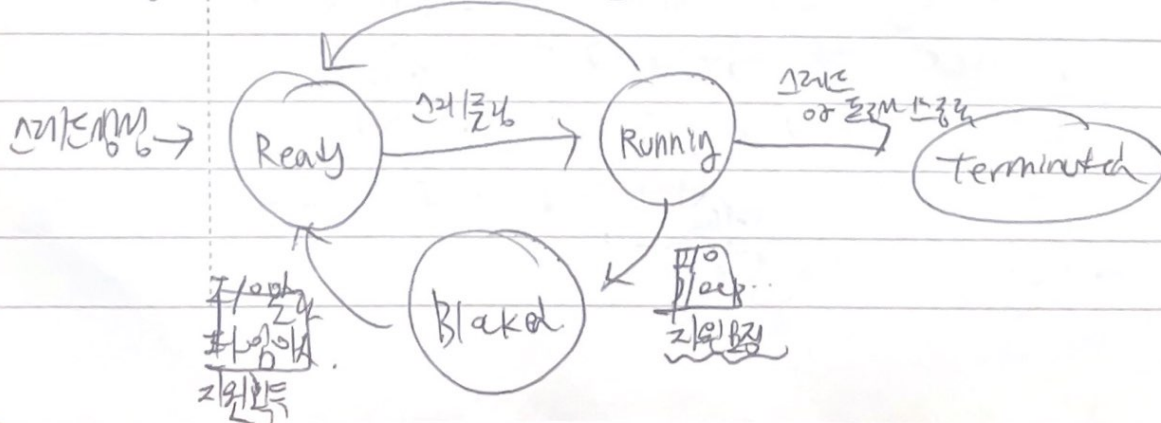 스레드생성 →
Ready
스케쥴링
Running
스레드
or 프로세스종료
Terminated
Blocked
I/O
sleep..
자원요청
I/O완료
타임아웃
자원획득